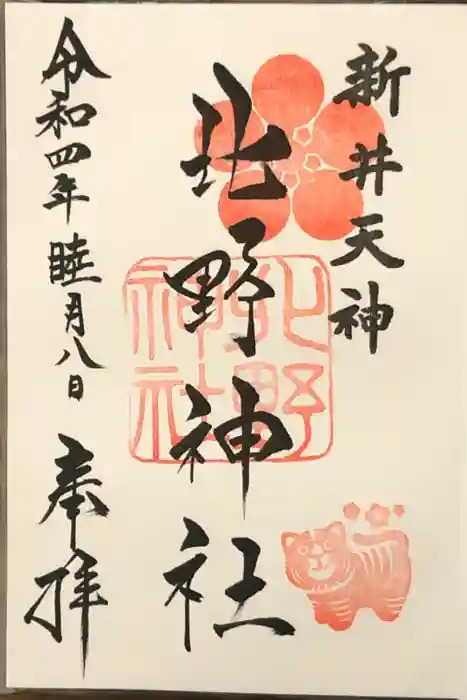 新井天神
北野神社
北野神社
令和四年睦月八日
奉拝